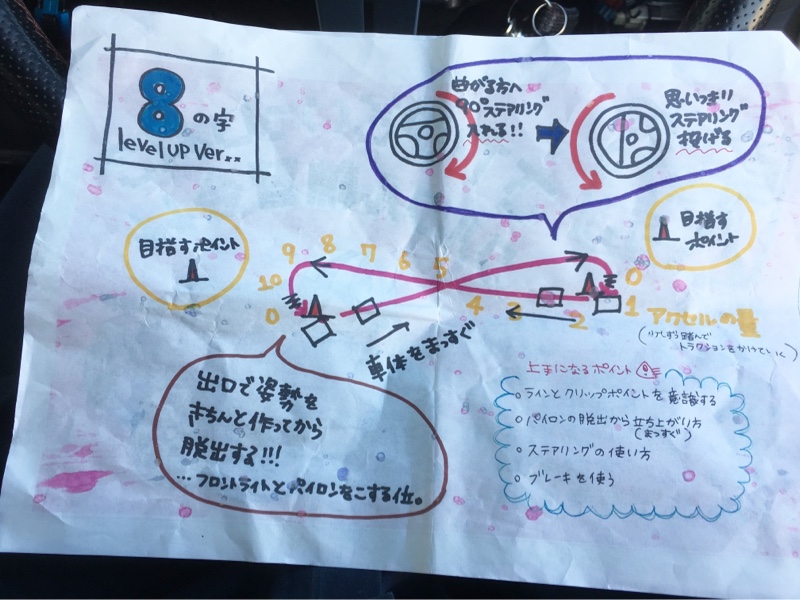 8の字
level UP Ver..
曲がる方へ
90°ステアリング
入れる!!
思いっきり
ステアリング
投げる
目指すポイント
目指す
ポイント
10 9 8 7 6 5 4 3 2 1 0
0
アクセルの量
(少しずつ踏んで
トラクションをかけていく)
車体をまっすぐ
出口で姿勢を
きちんと作ってから
脱出する!!!
…フロントライトとパイロンをこする位。
上手になるポイント
○ラインとクリップポイントを意識する
○パイロンの脱出から立ち上がり方
(まっすぐ)
○ステアリングの使い方
○ブレーキを使う